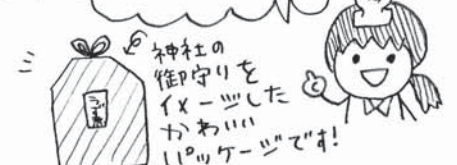 神社の
御守りを
イメージした
かわいい
パッケージです!